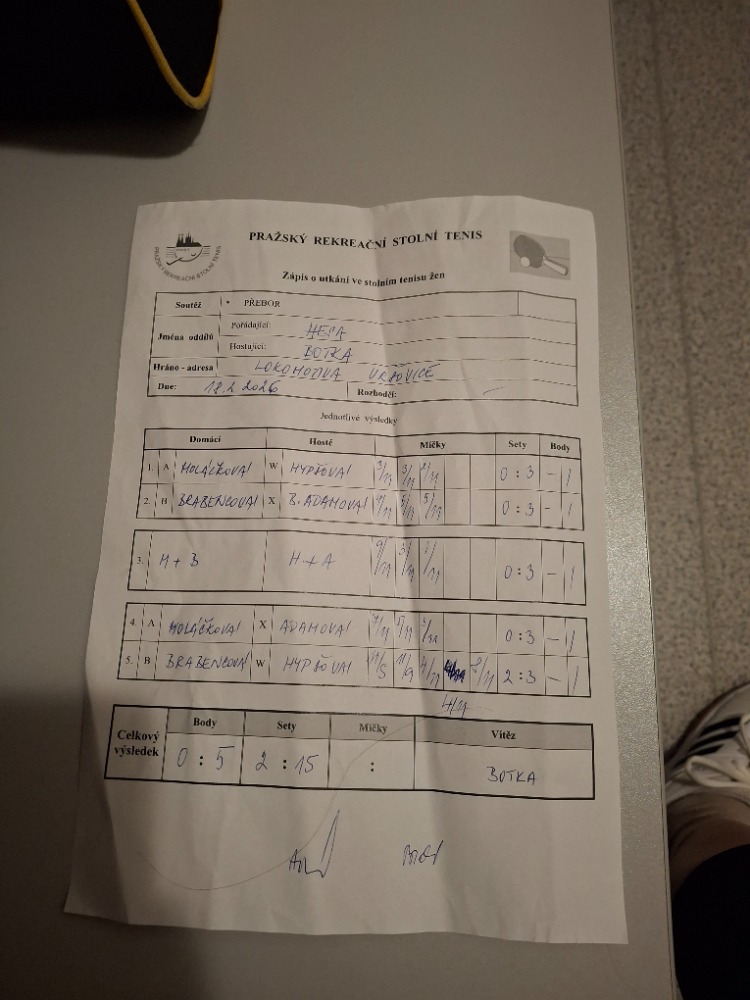 PRAŽSKÝ REKREAČNÍ STOLNÍ TENIS
PRAŽSKÝ REKREAČNÍ STOLNÍ TENIS
Zápis o utkání ve stolním tenisu žen
Soutěž • PŘEBOR
Jména oddílů
Pořádající: HEPA
Hostující: BOTKA
Hráno - adresa LOKOMOTIVA VRŠOVICE
Dne: 18.2.2026 Rozhodčí: —
Jednotlivé výsledky
Domácí Hosté Míčky Sety Body
1. A MOLÁČKOVÁ W HYPŠOVÁ 3/11 0 : 3 - 1
2. B BRABENCOVÁ X B. ADAMOVÁ 5/11 0 : 3 - 1
3. M + B H + A 9/11 3/11 0 : 3 - 1
4. A MOLÁČKOVÁ X ADAMOVÁ 7/11 0 : 3 - 1
5. B BRABENCOVÁ W HYPŠOVÁ 11/5 11/9 4/11 8/11 2 : 3 - 1
4/11
Celkový výsledek
Body Sety Míčky Vítěz
0 : 5 2 : 15 : BOTKA